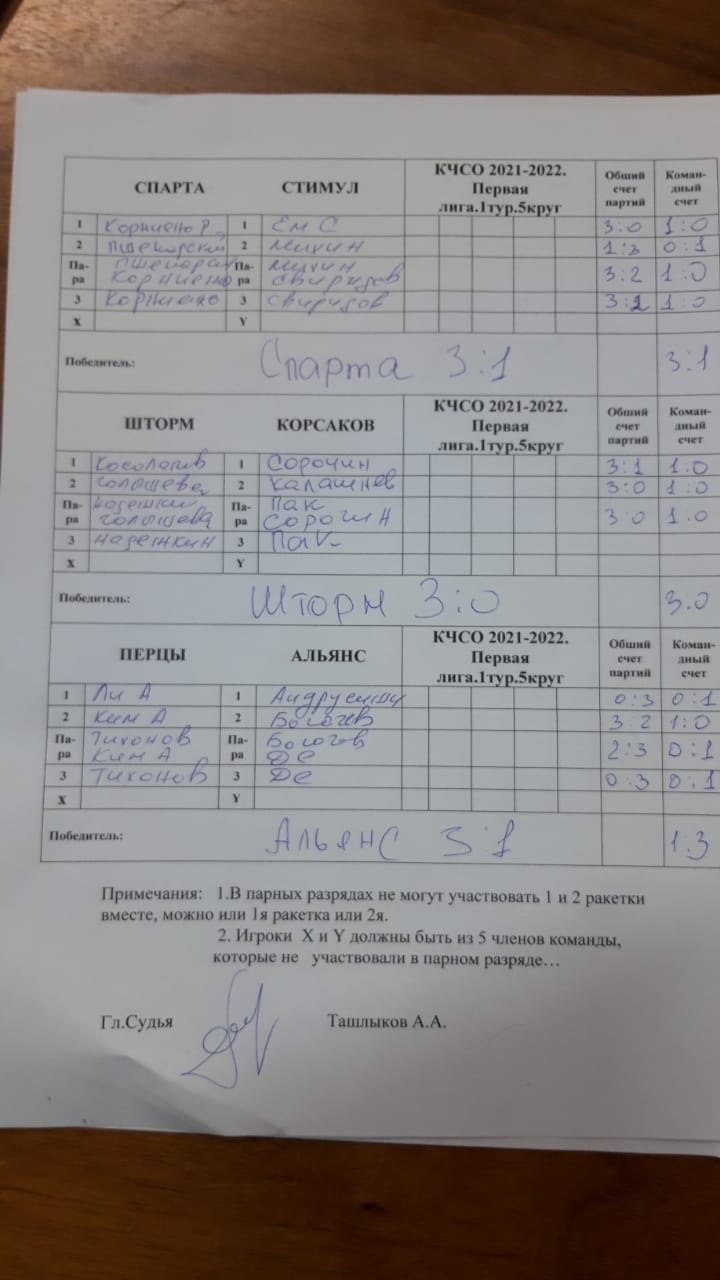 СПАРТА СТИМУЛ КЧСО 2021-2022. Первая лига.1тур.5круг Общий счет партий Коман-дный счет
1 Корниено Р. 1 Ем С 3:0 1:0
2 Пшекорский 2 Михин 1:3 0:1
Па-ра Корниено Па-ра Михин Свиридов 3:2 1:0
3 3 Свиридов 1:0
X Y
Победитель: Спарта 3:1 3:1
ШТОРМ КОРСАКОВ КЧСО 2021-2022. Первая лига.1тур.5круг Общий счет партий Коман-дный счет
1 Косолапов 1 Сорочин 3:1 1:0
2 Голышева 2 Калашнев 3:0 1:0
Па-ра Надежкин Голышева Па-ра Пак Сорочин 3:0 1:0
3 Надежкин 3 Пак
X Y
Победитель: Шторм 3:0 3:0
ПЕРЦЫ АЛЬЯНС КЧСО 2021-2022. Первая лига.1тур.5круг Общий счет партий Коман-дный счет
1 Ли А 1 0:3 0:1
2 Ким А 2 Богачев 3:2 1:0
Па-ра Тихонов Ким А Па-ра Де 2:3 0:1
3 Тихонов 3 Де 0:3 0:1
X Y
Победитель: Альянс 3:1 1:3
Примечания: 1.В парных разрядах не могут участвовать 1 и 2 ракетки
вместе, можно или 1я ракетка или 2я.
2. Игроки X и Y должны быть из 5 членов команды,
которые не участвовали в парном разряде…
Гл.Судья Ташлыков А.А.